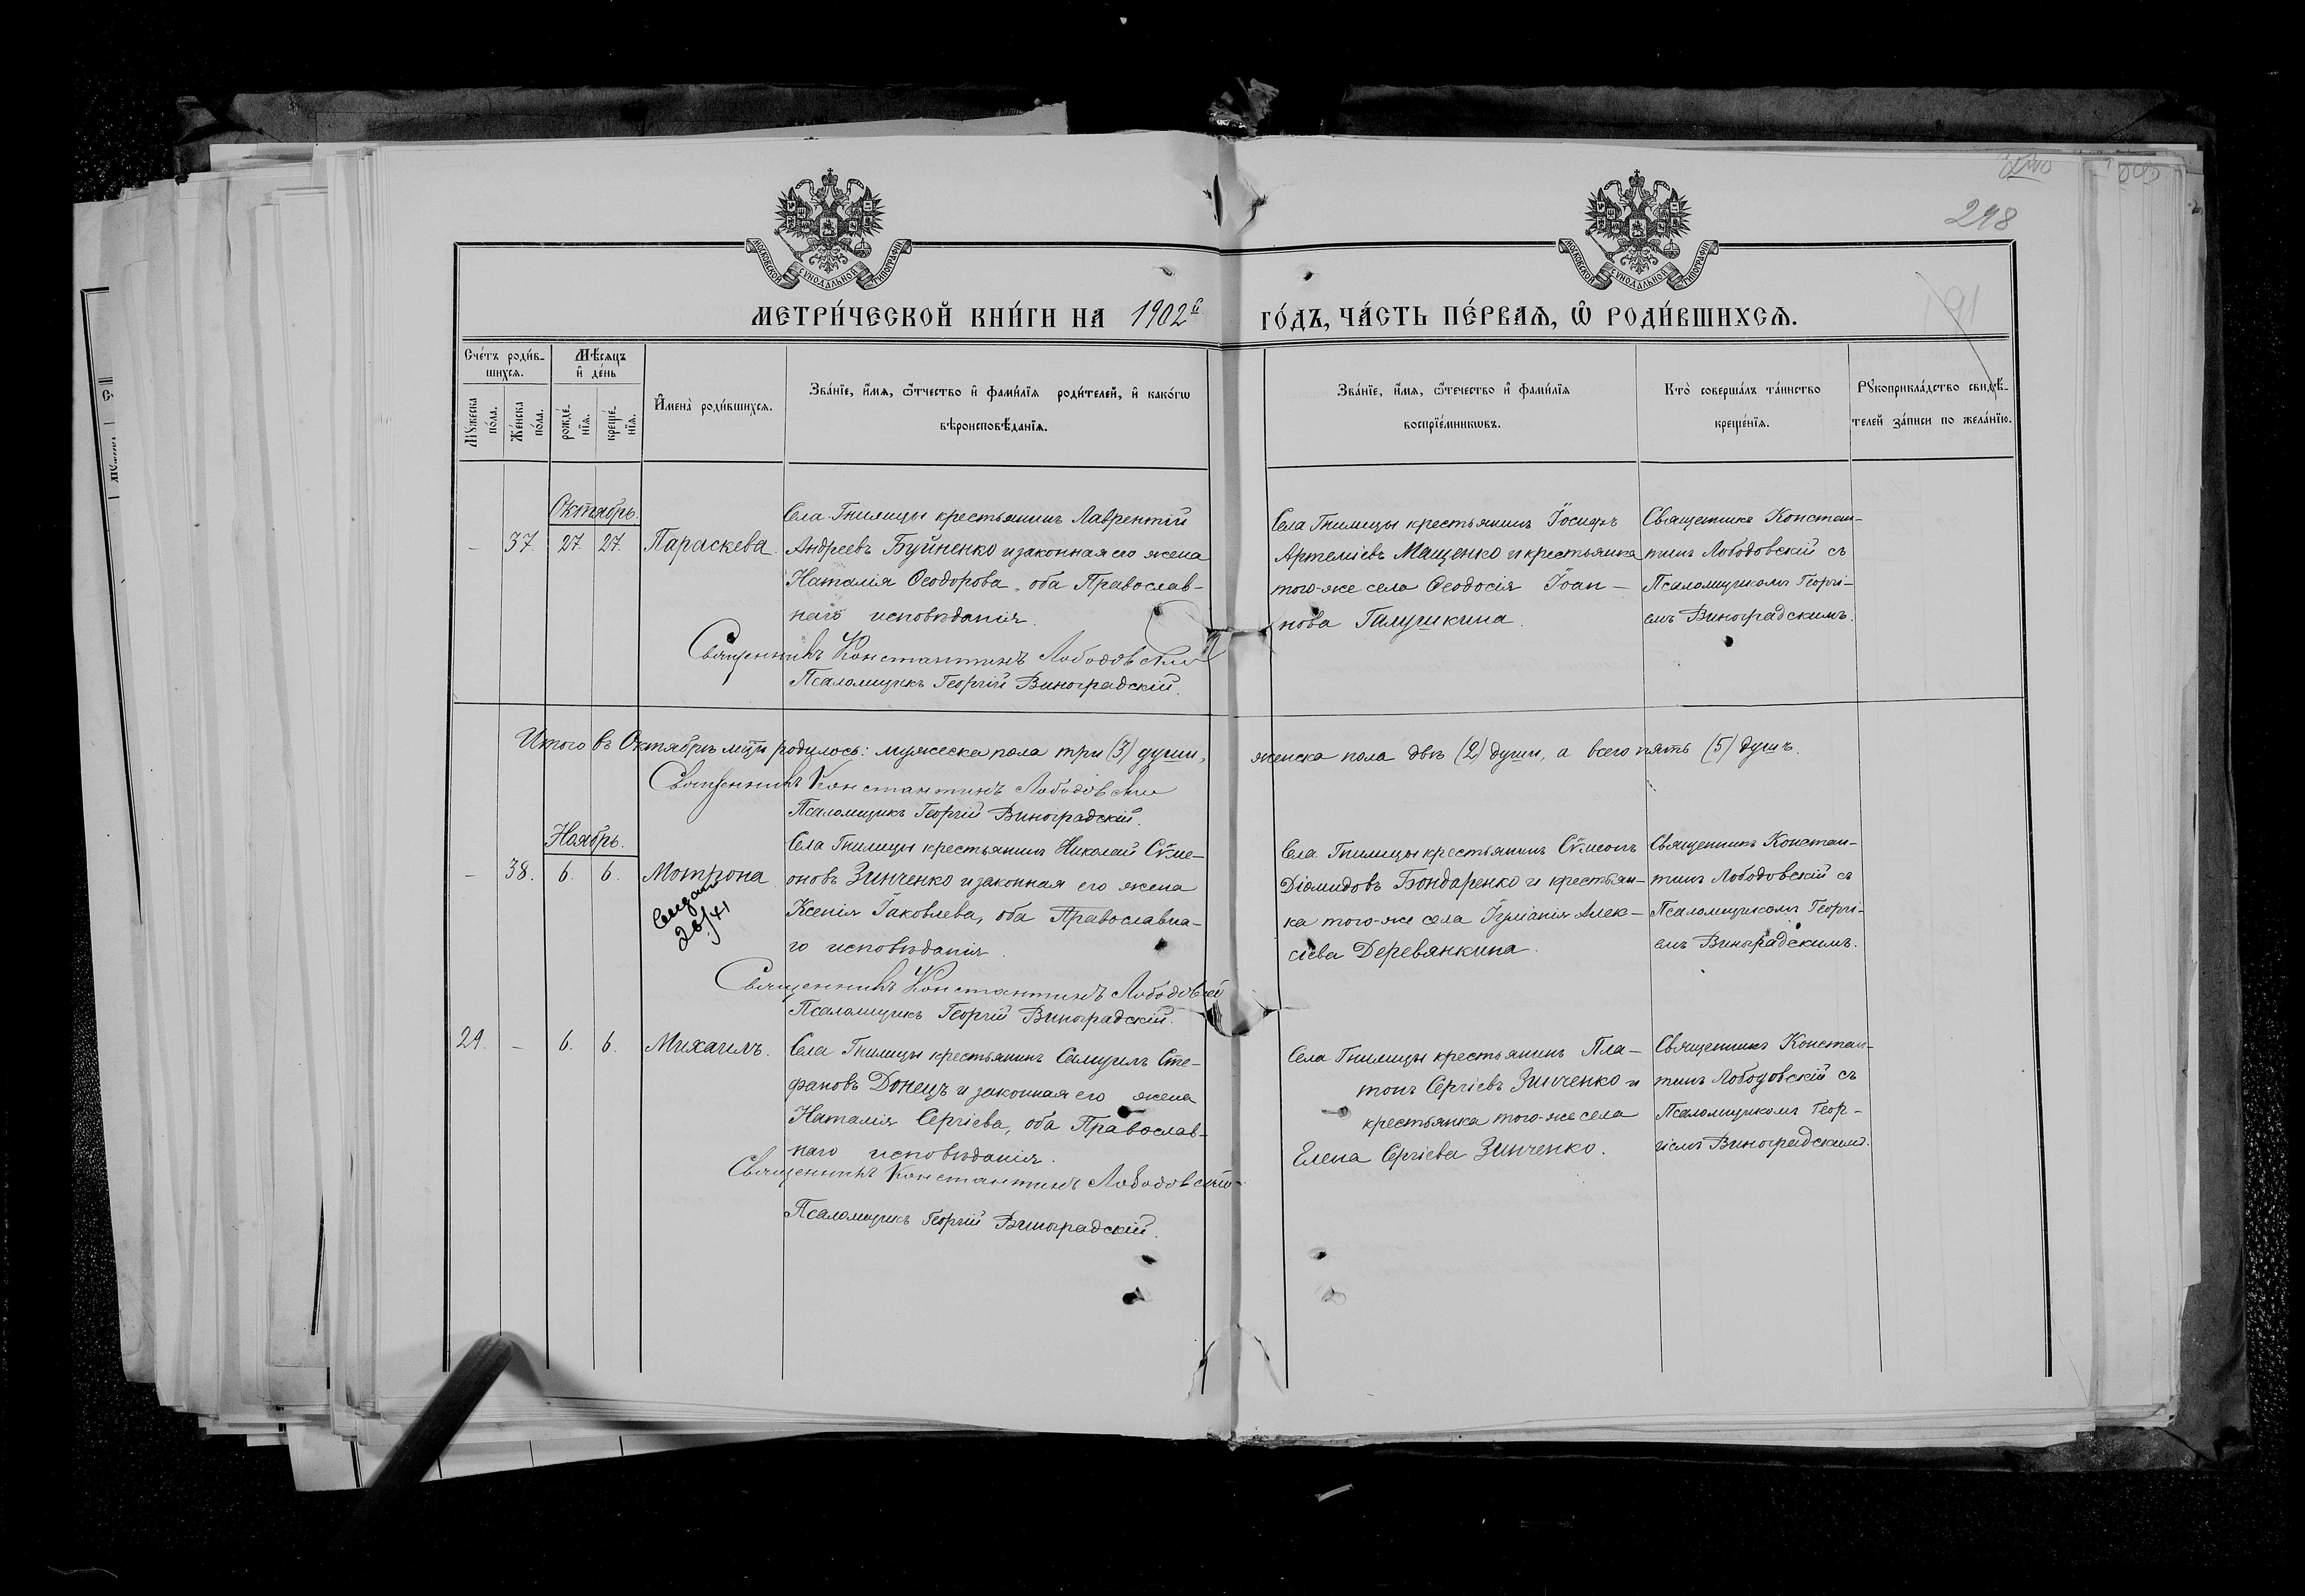 298
191
МОСКОВСКОЙ СУНОДАЛЬНОЙ ТИПОГРАФІИ
МОСКОВСКОЙ СУНОДАЛЬНОЙ ТИПОГРАФІИ
МЕТРИ́ЧЕСКОЙ КНИ́ГИ НА 1902й ГО́ДЪ, ЧА́СТЬ ПЕ́РВАѦ, Ѡ РОДИ́ВШИХСѦ.
Сче́тъ роди́в-
шихсѧ.
Мꙋ́жеска
по́ла.
Же́нска
по́ла.
Мѣ́сѧцъ
и҆ де́нь
рожде́-
нїѧ.
креще́-
нїѧ.
И҆мена̀ роди́вшихсѧ.
Зва́нїе, и҆́мѧ, ѻ҆́тчество и҆ фами́лїѧ роди́телей, и҆ како́гѡ
вѣроисповѣ́данїѧ.
Зва́нїе, и҆́мѧ, ѻ҆те́чество и҆ фами́лїѧ
воспрїе́мникѡвъ.
Кто̀ соверша́лъ та́инство
креще́нїѧ.
Рꙋкоприкла́дство свидѣ́-
телей за́писи по жела́нїю.
Октябрь.
– 37. 27. 27. Параскева.
Села Гнилицы крестьянинъ Лаврентій
Андреевъ Буйненко и законная его жена
Наталія Ѳеодорова, оба Православ-
наго исповѣданія.
Священникъ Константинъ Лободовскій
Псаломщикъ Георгій Виноградскій.
Села Гнилицы крестьянинъ Іосифъ
Артеміевъ Мащенко и крестьянка
того-же села Ѳеодосія Іоан-
нова Галушкина.
Священникъ Констан-
тинъ Лободовскій съ
Псаломщикомъ Георгі-
емъ Виноградскимъ.
Итого въ Октябрѣ м-цѣ родилось: мужеска пола три (3) души, женска пола двѣ (2) души, а всего пять (5) душъ.
Священникъ Константинъ Лободовскій
Псаломщикъ Георгій Виноградскій.
Ноябрь.
– 38. 6. 6. Мотрона
28/41
Села Гнилицы крестьянинъ Николай Сѵме-
оновъ Зинченко и законная его жена
Ксенія Іаковлева, оба Православна-
го исповѣданія.
Священникъ Константинъ Лободовскій
Псаломщикъ Георгій Виноградскій.
Села Гнилицы крестьянинъ Сѵмеонъ
Діомидовъ Бондаренко и крестьян-
ка того-же села Іуліанія Алек-
сіева Деревянкина.
Священникъ Констан-
тинъ Лободовскій съ
Псаломщикомъ Георгі-
емъ Виноградскимъ.
29. – 6. 6. Михаилъ.
Села Гнилицы крестьянинъ Самуилъ Сте-
фановъ Донецъ и законная его жена
Наталія Сергіева, оба Православ-
наго исповѣданія.
Священникъ Константинъ Лободовскій
Псаломщикъ Георгій Виноградскій.
Села Гнилицы крестьянинъ Пла-
тонъ Сергіевъ Зинченко и
крестьянка того-же села
Елена Сергіева Зинченко.
Священникъ Констан-
тинъ Лободовскій съ
Псаломщикомъ Геор-
гіемъ Виноградскимъ.